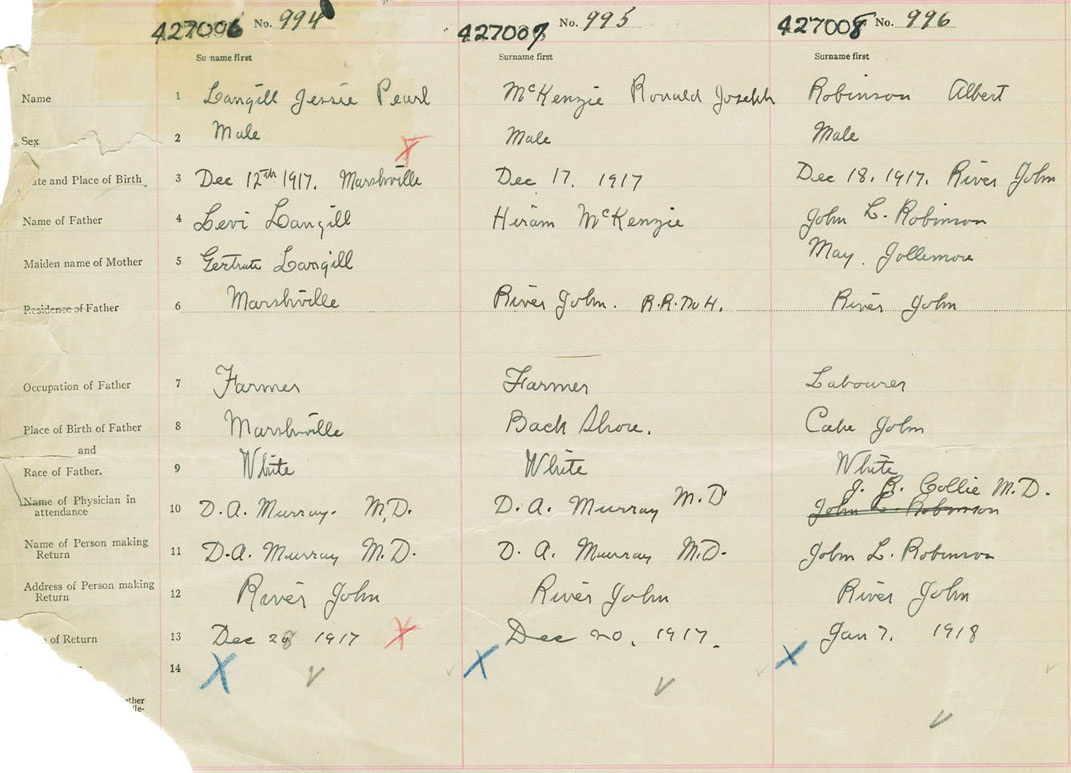 427006 No. 994 427007 No. 995 427008 No. 996
Surname first Surname first Surname first
Name 1 Langill Jessie Pearl McKenzie Ronald Joseph Robinson Albert
Sex 2 Male Male Male
ate and Place of Birth 3 Dec 12th 1917. Marshville Dec 17. 1917 Dec 18. 1917. River John
Name of Father 4 Levi Langill Hiram McKenzie John L. Robinson
Maiden name of Mother 5 Gertrute Langill May. Jollemore
Residence of Father 6 Marshville River John. R.R. No 4. River John
Occupation of Father 7 Farmer Farmer Labourer
Place of Birth of Father 8 Marshville Back Shore. Cape John
and
Race of Father. 9 White White White
J. B. Collie M.D.
Name of Physician in
attendance 10 D.A. Murray. M.D. D. A. Murray M.D John L. Robinson
Name of Person making
Return 11 D.A. Murray M.D. D. A. Murray M.D. John L. Robinson
Address of Person making
Return 12 River John River John River John
of Return 13 Dec 1917 Dec 20. 1917. Jan 7. 1918
14
ther
le-